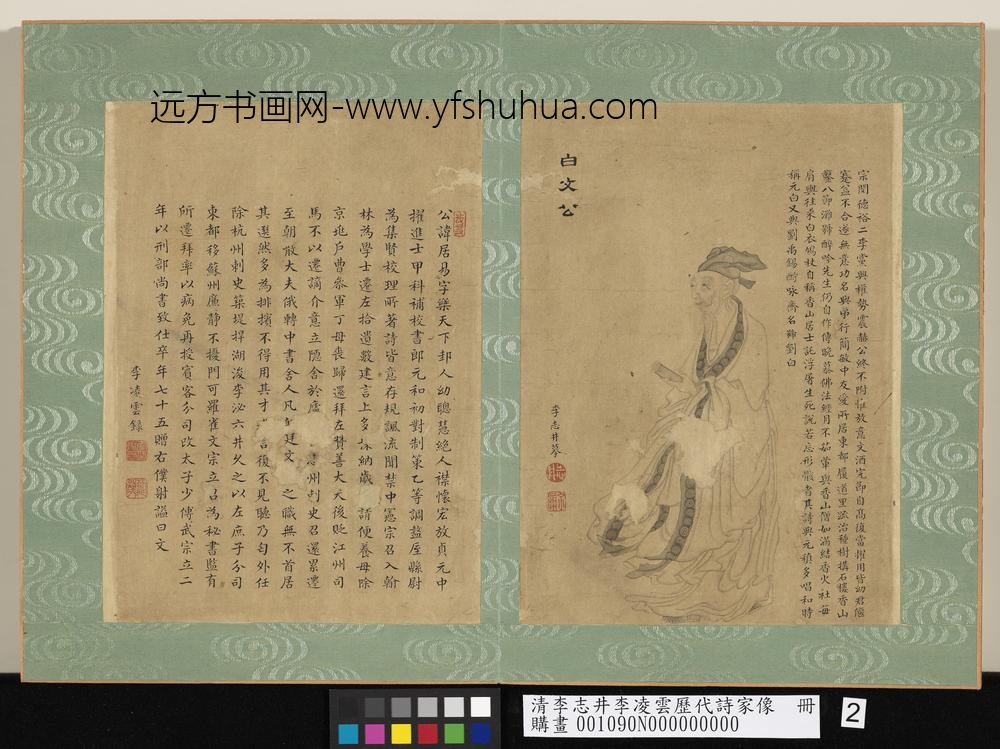 远方书画网-www.yfshuhua.com
白文公
宗閔德裕二李黨興權勢震赫公終不附惟放意文酒完節自高復當擢用皆幼君偃
蹇益不合遂無意功名與弟行簡敏中友愛所居東都履道里疏治種樹搆石樓香山
鑿八節灘號醉吟先生仍自作傳晚慕佛法經月不茹葷與香山僧如滿結香火社每
肩輿往來白衣鳩杖自稱香山居士託浮屠生死說若忘形骸者其詩與元稹多唱和時
稱元白又與劉禹錫酧咏齊名號劉白
李志井摹
公諱居易字樂天下邽人幼聰慧絶人襟懷宏放貞元中
擢進士甲科補校書郎元和初對制策乙等調盩厔縣尉
為集賢校理所著詩皆意存規諷流聞禁中憲宗召入翰
林為學士遷左拾遺數建言上多 納歲 請便養母除
京兆戶曹參軍丁母喪歸還拜左贊善大夫後貶江州司
馬不以遷謫介意立隱舍於廬 州刺史召還累遷
至朝散大夫俄轉中書舍人凡 建文 之職無不首居
其選然多為排擯不得用其才 言後不見聽乃匄外任
除杭州刺史築堤捍湖浚李泌六井久之以左庶子分司
東都移蘇州廉静不擾門可羅雀文宗立召為秘書監有
所遷拜率以病免再授賓客分司改太子少傅武宗立二
年以刑部尚書致仕卒年七十五贈右僕射謚曰文
李凌雲錄
清李志井李凌雲歷代詩家像 冊
購畫 001090N000000000
2